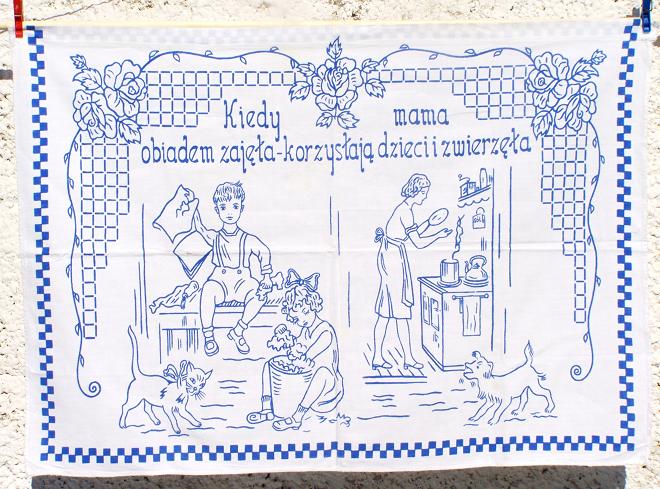 Kiedy mama
obiadem zajęta-korzystają dzieci i zwierzęta